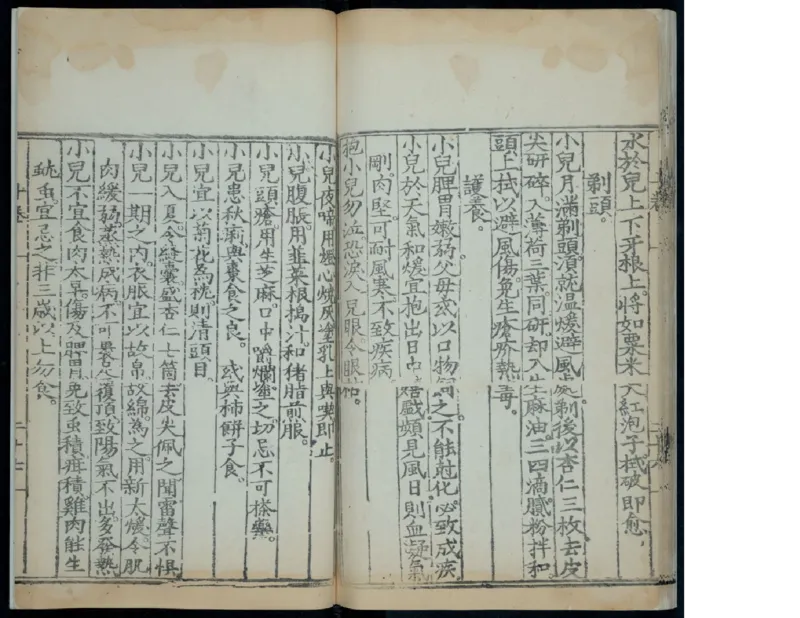 水於兒上下牙根上。將如粟米大紅泡子拭破即愈，
剃頭。
小兒月滿剃頭，須就溫煖避風處剃後以杏仁三枚去皮
尖研碎，入薄荷三葉同研，却入生麻油三四滴膩粉拌和
頭上拭以避風傷免生瘡疥熱毒。
護養。
小兒脾胃嫩弱，父母或以口物飼之，不能尅化必致成疾。
小兒於天氣和煖，宜抱出日中嬉戲頻見風日，則血凝氣
剛，肉堅可耐風寒，不致疾病
抱小兒勿泣恐淚入兒眼令眼枯。
小兒夜啼用燈心燒灰塗乳上與喫即止。
小兒腹脹，用韮菜根搗汁，和猪脂煎服。
小兒頭瘡，用生芝麻口中嚼爛塗之切忌不可搽藥。
小兒患秋痢，與棗食之良。或與柿餅子食。
小兒宜以菊花為枕，則清頭目。
小兒入夏，令縫囊盛杏仁七箇去皮尖佩之聞雷聲不懼
小兒一期之內衣服宜以故帛故綿為之，用新太煖，令肌
肉緩弱，蒸熱成病，不可裹足覆頂致陽氣不出，多發熱
小兒不宜食肉太早，傷及脾胃免致虫積，疳積，雞肉能生
蚘虫宜忌之非三歲以上勿食。
十卷
二十七